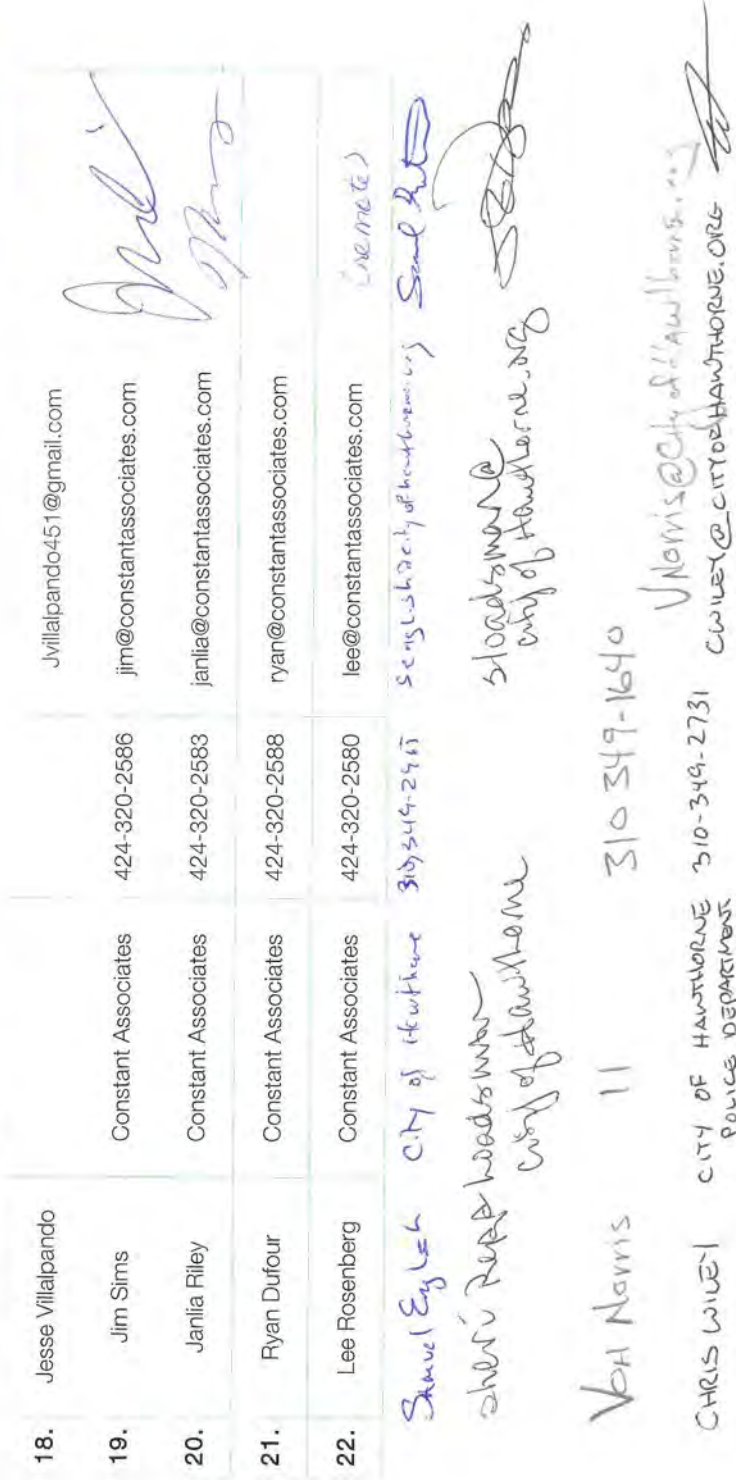 18. Jesse Villalpando Jvillalpando451@gmail.com
19. Jim Sims Constant Associates 424-320-2586 jim@constantassociates.com
20. Janlia Riley Constant Associates 424-320-2583 janlia@constantassociates.com
21. Ryan Dufour Constant Associates 424-320-2588 ryan@constantassociates.com
22. Lee Rosenberg Constant Associates 424-320-2580 lee@constantassociates.com (remote)
Samuel English City of Hawthorne
Sheri Repp Loadsman sloadsman@
City of Hawthorne cityofHawthorne.org
Von Norris 11 310 349-1640 VNorris@CityofHawthorne.org
CHRIS WILEY CITY OF HAWTHORNE 310-349-2731 CWILEY@CITYOFHAWTHORNE.ORG
POLICE DEPARTMENT